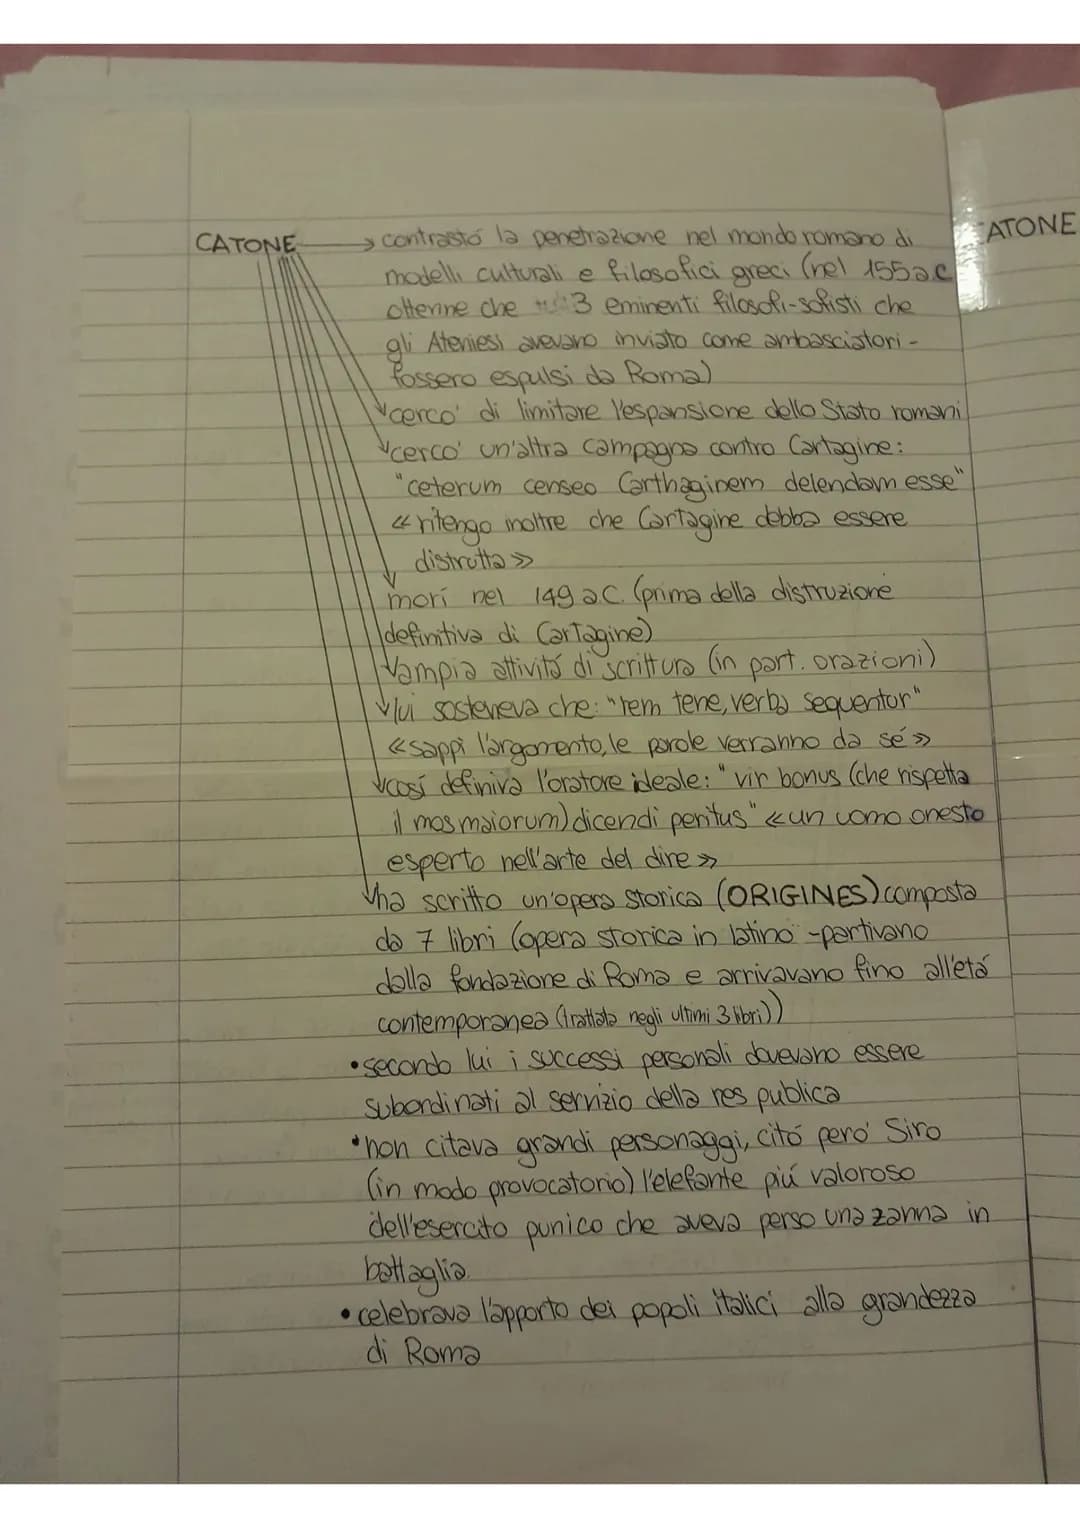 CATONE → contrastó la penetrazione nel mondo romano di
modelli culturali e filosofici greci (nel 155 a.C
ottenne che 3 eminenti filosofi-sofisti che
gli Ateniesi avevano inviato come ambasciatori -
fossero espulsi da Roma)
cerco' di limitare l'espansione dello Stato romani
cerco' un'altra campagna contro Cartagine:
"ceterum censeo Carthaginem delendam esse"
« ritengo inoltre che Cartagine debba essere
distrutta »
morí nel 149 a.C. (prima della distruzione
definitiva di Cartagine)
ampia attivitá di scrittura (in part. orazioni)
lui sosteneva che: "rem tene, verba sequentor"
« sappi l'argomento, le parole verranno da sé »
cosí definiva l'oratore ideale: "vir bonus (che rispetta
il mos maiorum) dicendi peritus" « un uomo onesto
esperto nell'arte del dire »
ha scritto un'opera storica (ORIGINES) composta
da 7 libri (opera storica in latino - partivano
dalla fondazione di Roma e arrivavano fino all'etá
contemporanea (trattata negli ultimi 3 libri))
• secondo lui i successi personali dovevano essere
subordinati al servizio della res publica
• non citava grandi personaggi, citó pero' Siro
(in modo provocatorio) l'elefante piú valoroso
dell'esercito punico che aveva perso una zanna in
battaglia.
• celebrava l'apporto dei popoli italici alla grandezza
di Roma
CATONE